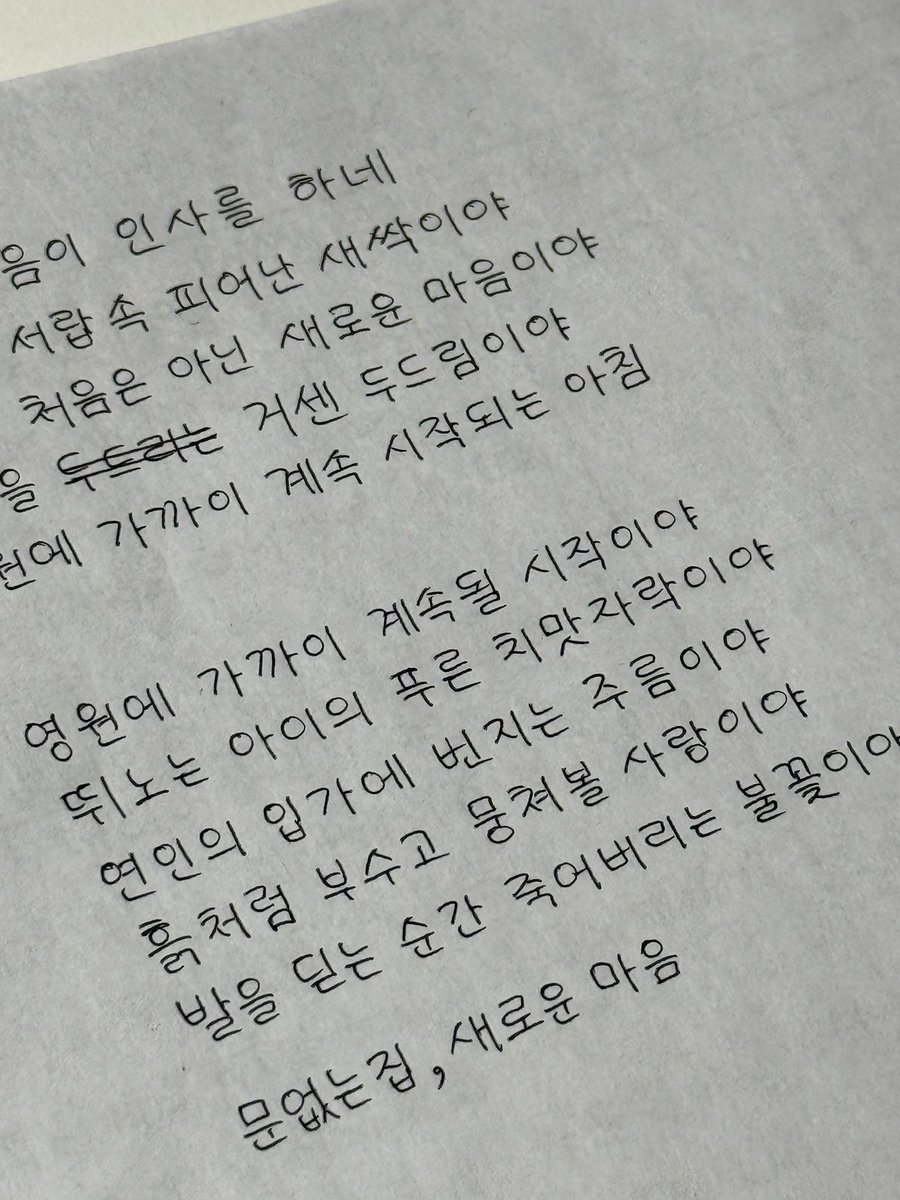 음이 인사를 하네
서랍 속 피어난 새싹이야
처음은 아닌 새로운 마음이야
을 두드리는 거센 두드림이야
원에 가까이 계속 시작되는 아침
영원에 가까이 계속될 시작이야
뛰노는 아이의 푸른 치맛자락이야
연인의 입가에 번지는 주름이야
흙처럼 부수고 뭉쳐볼 사랑이야
발을 딛는 순간 죽어버리는 불꽃이야
문없는집, 새로운 마음